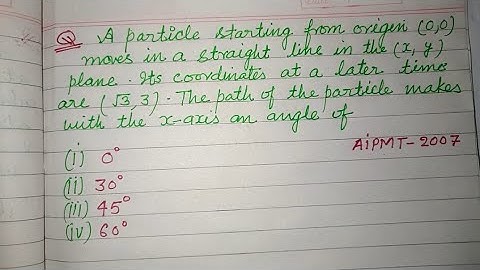 Q A particle starting from origin (0,0)
moves in a straight line in the (x, y)
plane. Its coordinates at a later time
are (√3, 3). The path of the particle makes
with the x-axis an angle of
AiPMT-2007
(i) 0°
(ii) 30°
(iii) 45°
(iv) 60°